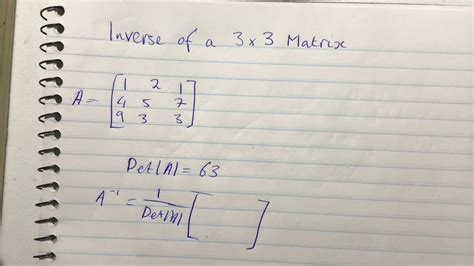 Inverse of a 3x3 Matrix
A = [1 2 1
4 5 7
9 3 3]
Det|A| = 63
A⁻¹ = 1/Det|A| [ ]